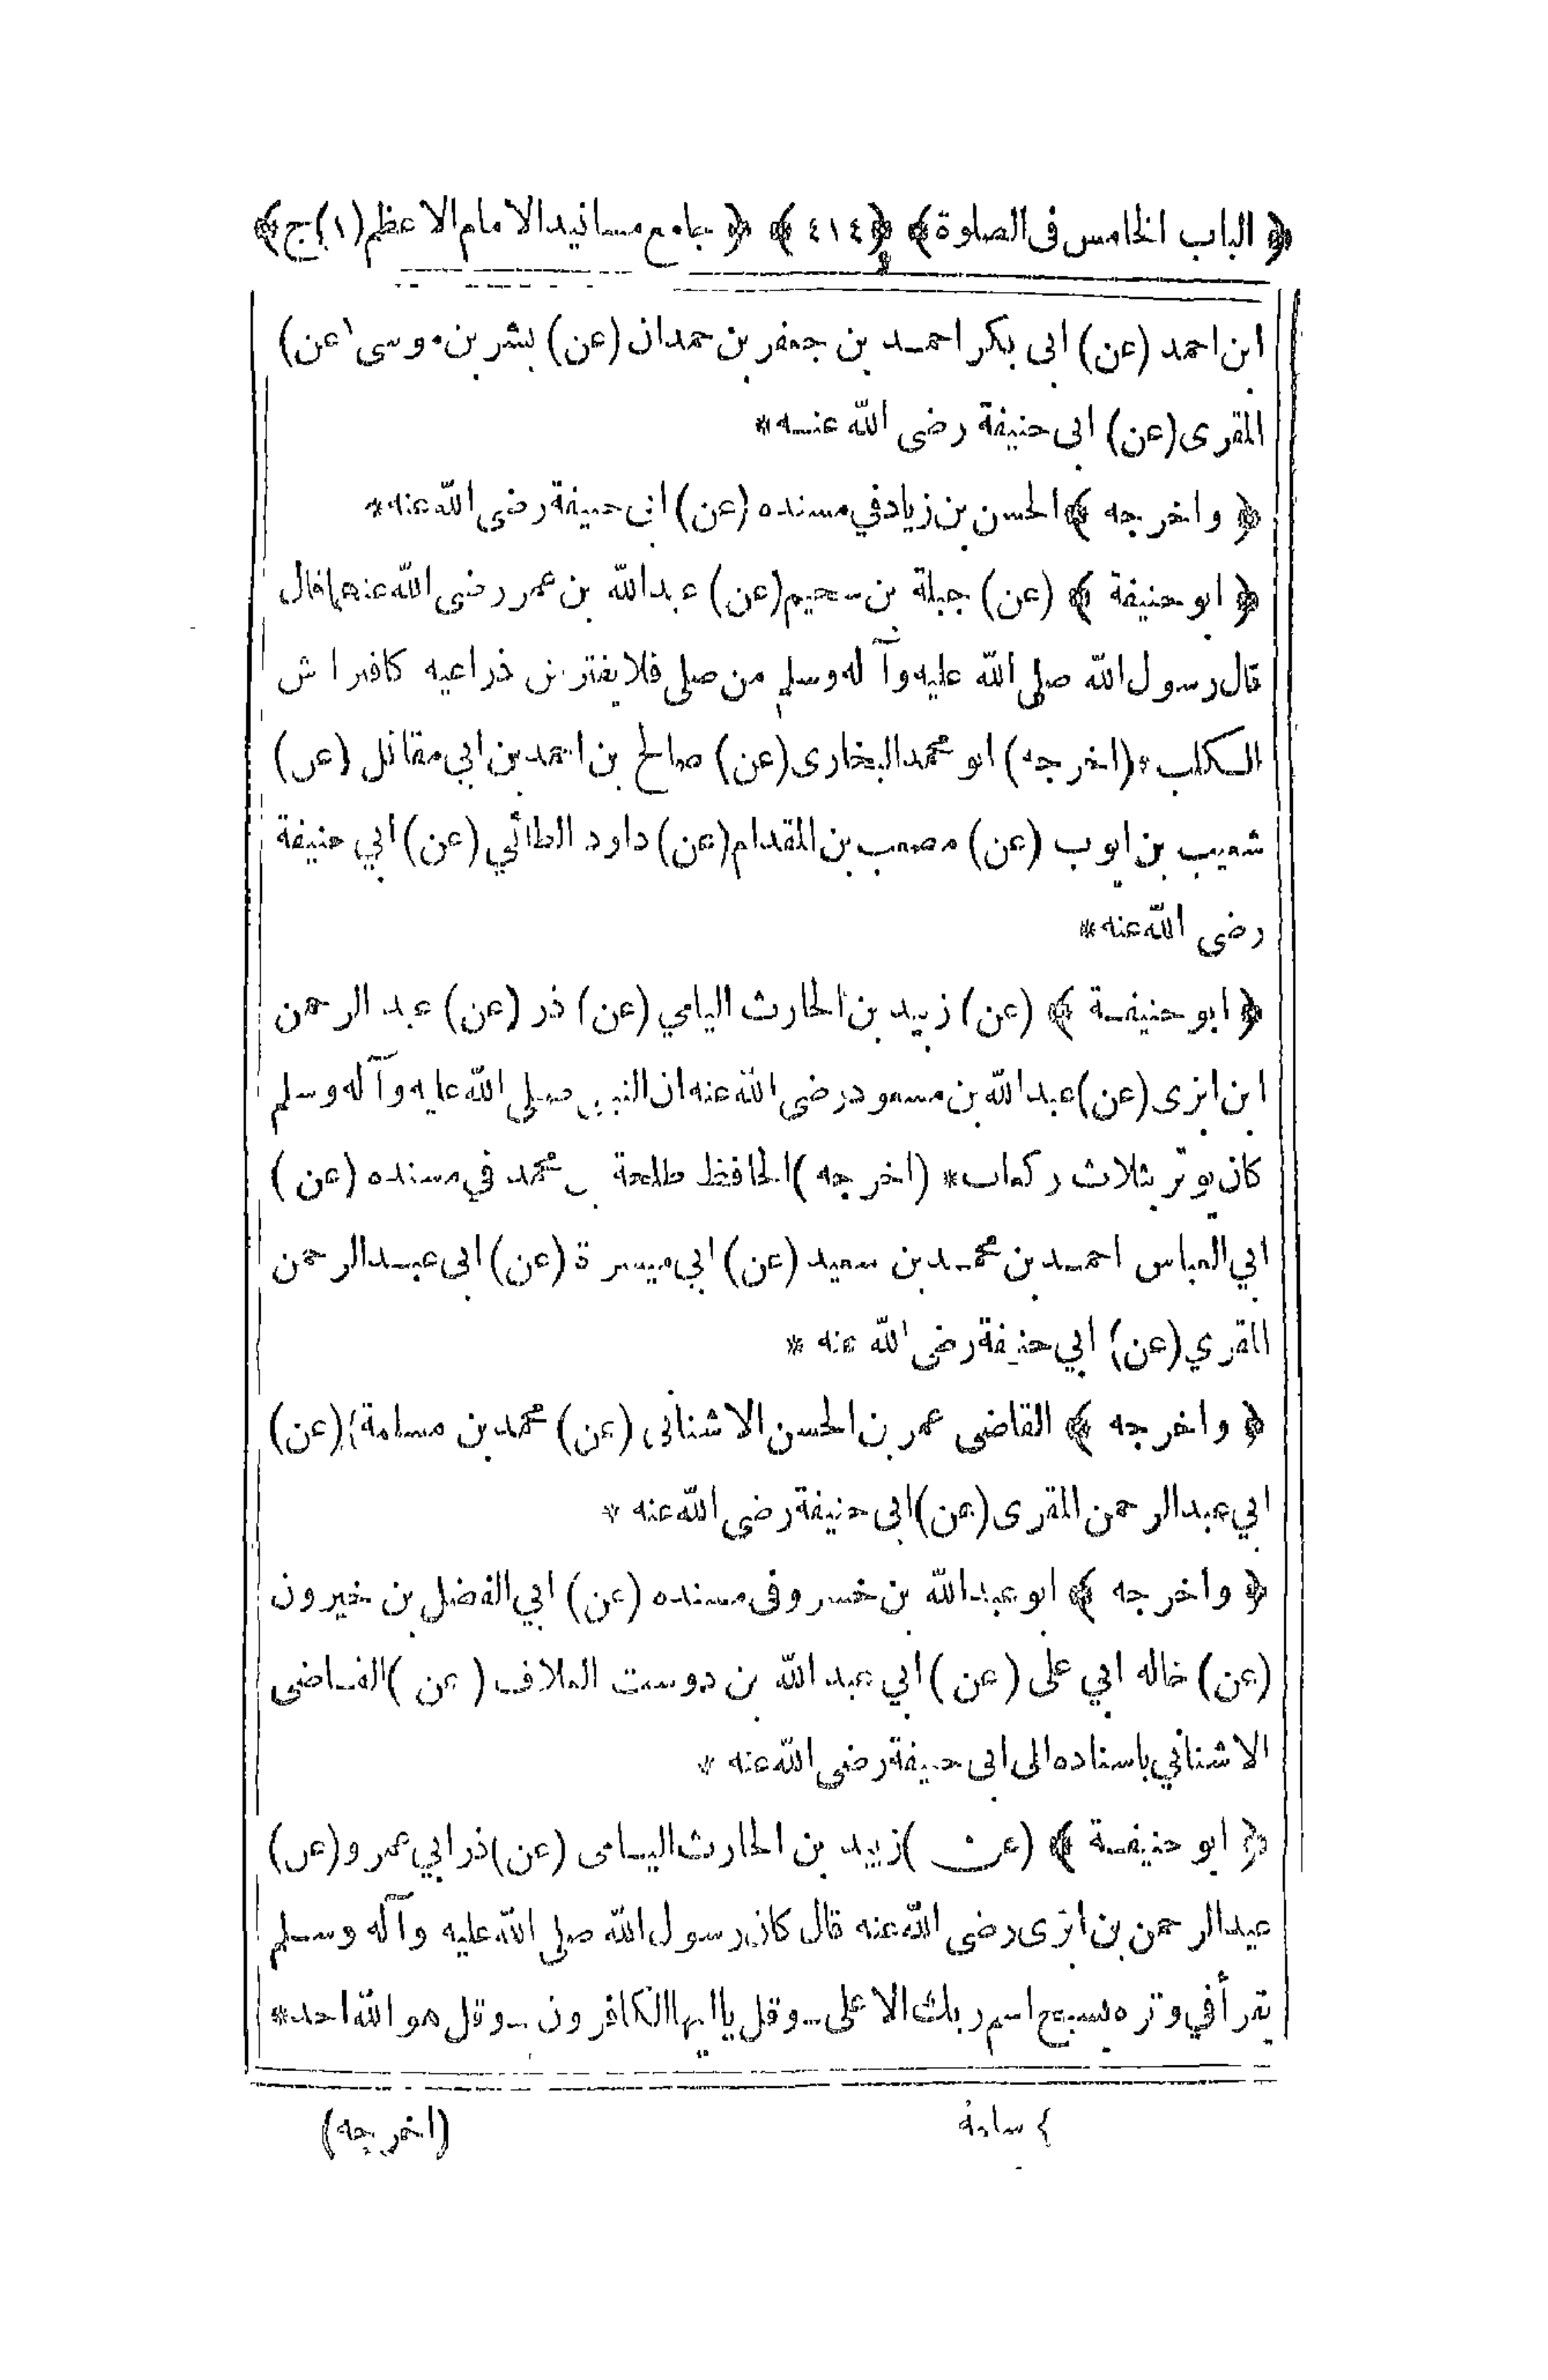 ﴿ الباب الخامس فى الصلوة ﴾ ﴿ ٤١٤ ﴾ ﴿ جامع مسانيد الامام الاعظم (١) ج ﴾
ابن احمد (عن) ابى بكر احمد بن جعفر بن حمدان (عن) بشر بن موسى (عن)
المقرى (عن) ابى حنيفة رضى الله عنه *
﴿ واخرجه ﴾ الحسن بن زياد في مسنده (عن) ابى حنيفة رضى الله عنه *
﴿ ابو حنيفة ﴾ (عن) جبلة بن سحيم (عن) عبد الله بن عمر رضى الله عنهما قال
قال رسول الله صلى الله عليه وآله وسلم من صلى فلا يفترش ذراعيه كافتراش
الكلب * (اخرجه) ابو محمد البخارى (عن) صالح بن احمد بن ابي مقاتل (عن)
شعيب بن ايوب (عن) مصعب بن المقدام (عن) داود الطائي (عن) ابي حنيفة
رضى الله عنه *
﴿ ابو حنيفة ﴾ (عن) زبيد بن الحارث اليامي (عن) ذر (عن) عبد الرحمن
ابن ابزى (عن) عبد الله بن مسعود رضى الله عنه ان النبى صلى الله عليه وآله وسلم
كان يوتر بثلاث ركعات * (اخرجه) الحافظ طلحة بن محمد في مسنده (عن)
ابي العباس احمد بن محمد بن سعيد (عن) ابي ميسرة (عن) ابى عبد الرحمن
المقري (عن) ابي حنيفة رضى الله عنه *
﴿ واخرجه ﴾ القاضى عمر بن الحسن الاشنانى (عن) محمد بن مسلمة ٤ (عن)
ابي عبد الرحمن المقرى (عن) ابى حنيفة رضى الله عنه *
﴿ واخرجه ﴾ ابو عبد الله بن خسرو فى مسنده (عن) ابي الفضل بن خيرون
(عن) خاله ابي على (عن) ابي عبد الله بن دوست العلاف (عن) القاضى
الاشناني باسناده الى ابى حنيفة رضى الله عنه *
﴿ ابو حنيفة ﴾ (عن) زبيد بن الحارث اليامى (عن) ذر ابي عمرو (عن)
عبد الرحمن بن ابزى رضى الله عنه قال كان رسول الله صلى الله عليه وآله وسلم
يقرأ في وتره بسبح اسم ربك الاعلى - وقل يا ايها الكافرون - وقل هو الله احد *
٤ سلمة
(اخرجه)